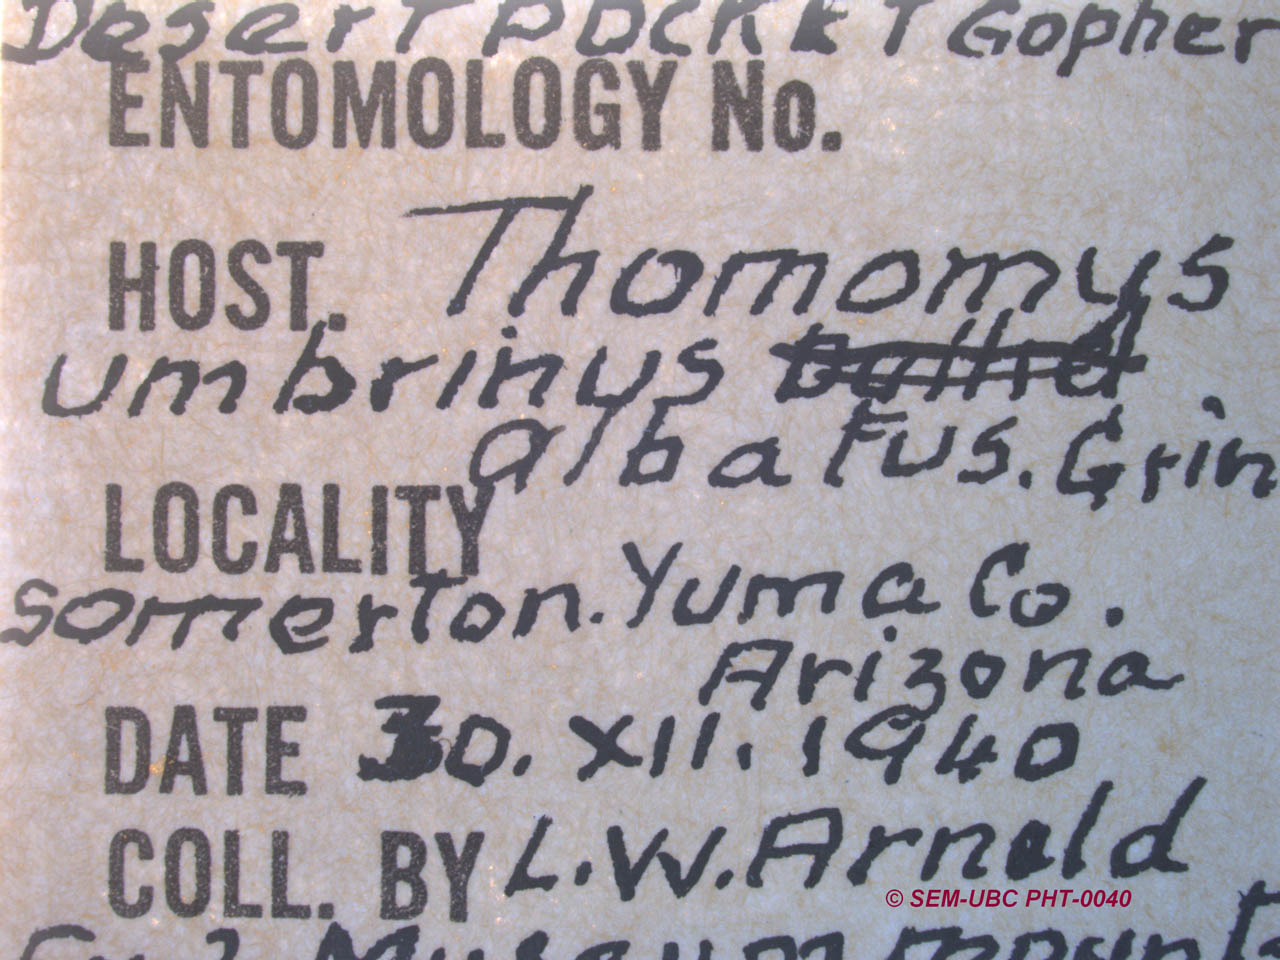 Desert Pocket Gopher
ENTOMOLOGY No.
HOST. Thomomys
umbrinus
albatus. Grin
LOCALITY
Somerton. Yuma Co.
Arizona
DATE 30. XII. 1940
COLL. BY L. W. Arnold
© SEM-UBC PHT-0040
Museum